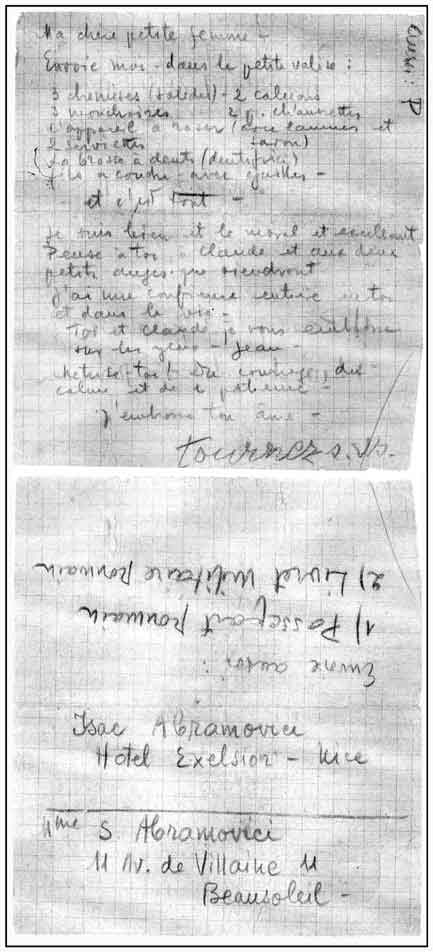 Ma chère petite femme -
Envoie moi - dans la petite valise :
3 chemises (solides) - 2 caleçons
3 mouchoirs 2 p. chaussettes
L'appareil à raser (avec lammes et
2 serviettes savon)
La brosse à dents (dentifrice)
fils à coudre - avec eguilles -
et c'est tout -
Je suis bien et le moral est excellent
Pense à toi, à Claude et aux deux
petits anges que viendront
J'ai une confiance entière en toi
et dans la vie -
Toi et Claude je vous embrasse
sur les yeux - Jean -
toi! Du courage, du
calme et de la patience -
J'embrasse ton âme -
tournez s.v.p.
Envoie aussi :
1) Passeport roumain
2) Livret militaire roumain
Isac Abramovici
Hotel Exelsior - Nice
Mme S. Abramovici
11 Av. de Villaine 11
Beausoleil -